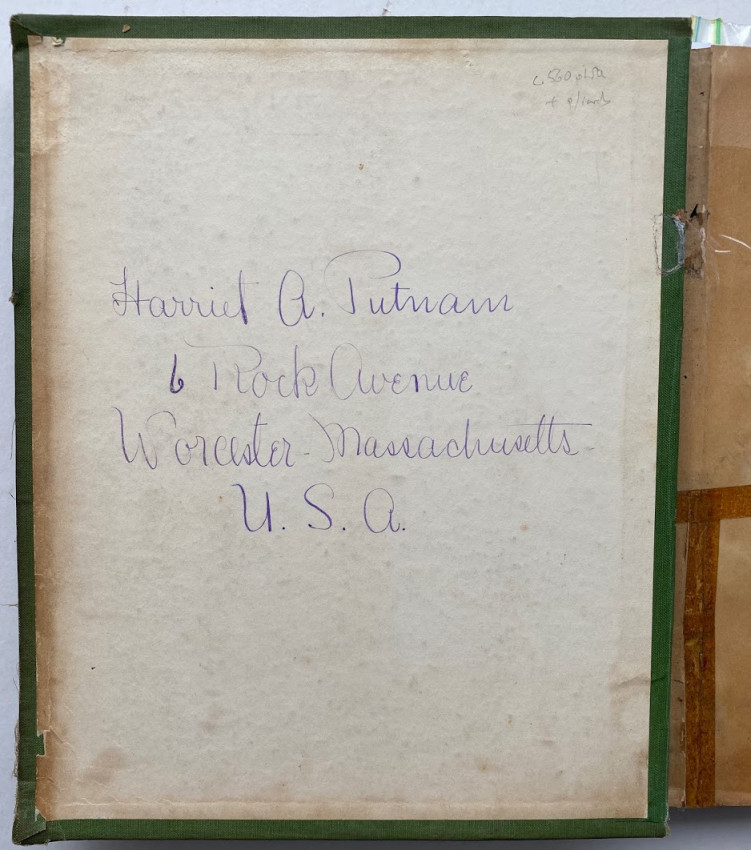 c. 550
+
Harriet A. Putnam
6 Rock Avenue
Worcester - Massachusetts -
U. S. A.